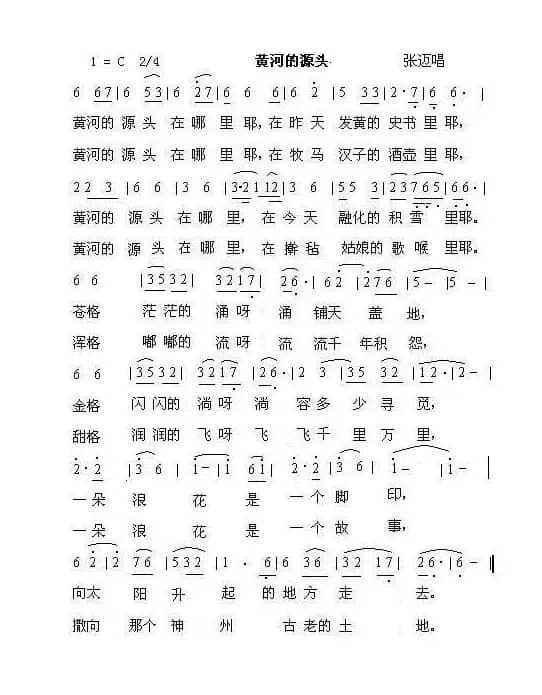 1 = C 2/4 黄河的源头 张迈唱
6 67|6 53|6 27|6 6 6|6 2|5 33|2·7|6 6·|
黄河的 源 头 在 哪 里 耶,在 昨 天 发黄的 史书 里 耶,
黄河的 源 头 在 哪 里 耶,在 牧 马 汉子的 酒壶 里 耶,
22 3 |6 6 |3 6 |3·2112|3 6 |55 3|23765|66·|
黄河的 源头 在哪 里, 在 今 天 融化的 积 雪 里耶。
黄河的 源 头 在哪 里, 在 擀 毡 姑娘的 歌 喉 里耶。
6 6 |3532| 3217|26·|62 |276 |5– |5 –|
苍格 茫茫的 涌呀 涌 铺天 盖 地,
浑格 嘟嘟的 流呀 流 流千 年积 怨,
6 6 |3532| 3217|26·|2 3 |35 32 |12·|2–|
金格 闪闪的 淌呀 淌 容多 少 寻 觅,
甜格 润润的 飞呀 飞 飞千 里 万 里,
2·2 |3 6 |1–|1 61| 2·2|3 6 |1– |1–|
一朵 浪 花 是 一 个 脚 印,
一朵 浪 花 是 一 个 故 事,
6 2|2 76 |532 |1 · 6|6 36 |32 17 |26·|6 –‖
向太 阳 升 起 的 地方 走 去。
撒向 那个 神 州 古 老的 土 地。